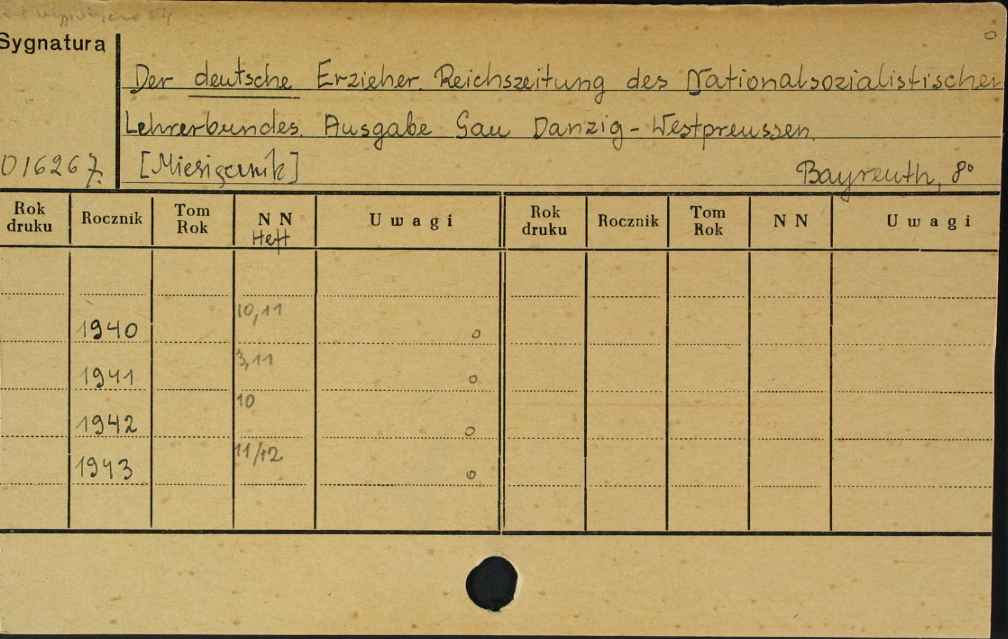 Sygnatura
Der deutsche Erzieher. Reichszeitung des Nationalsozialistischen
Lehrerbundes. Ausgabe Gau Danzig-Westpreussen.
016267 [Miesięcznik] Bayreuth, 8°
Rok druku Rocznik Tom Rok NN Heft Uwagi Rok druku Rocznik Tom Rok NN Uwagi
1940 10,11 o
1941 3,11 o
1942 10 o
1943 11/12 o